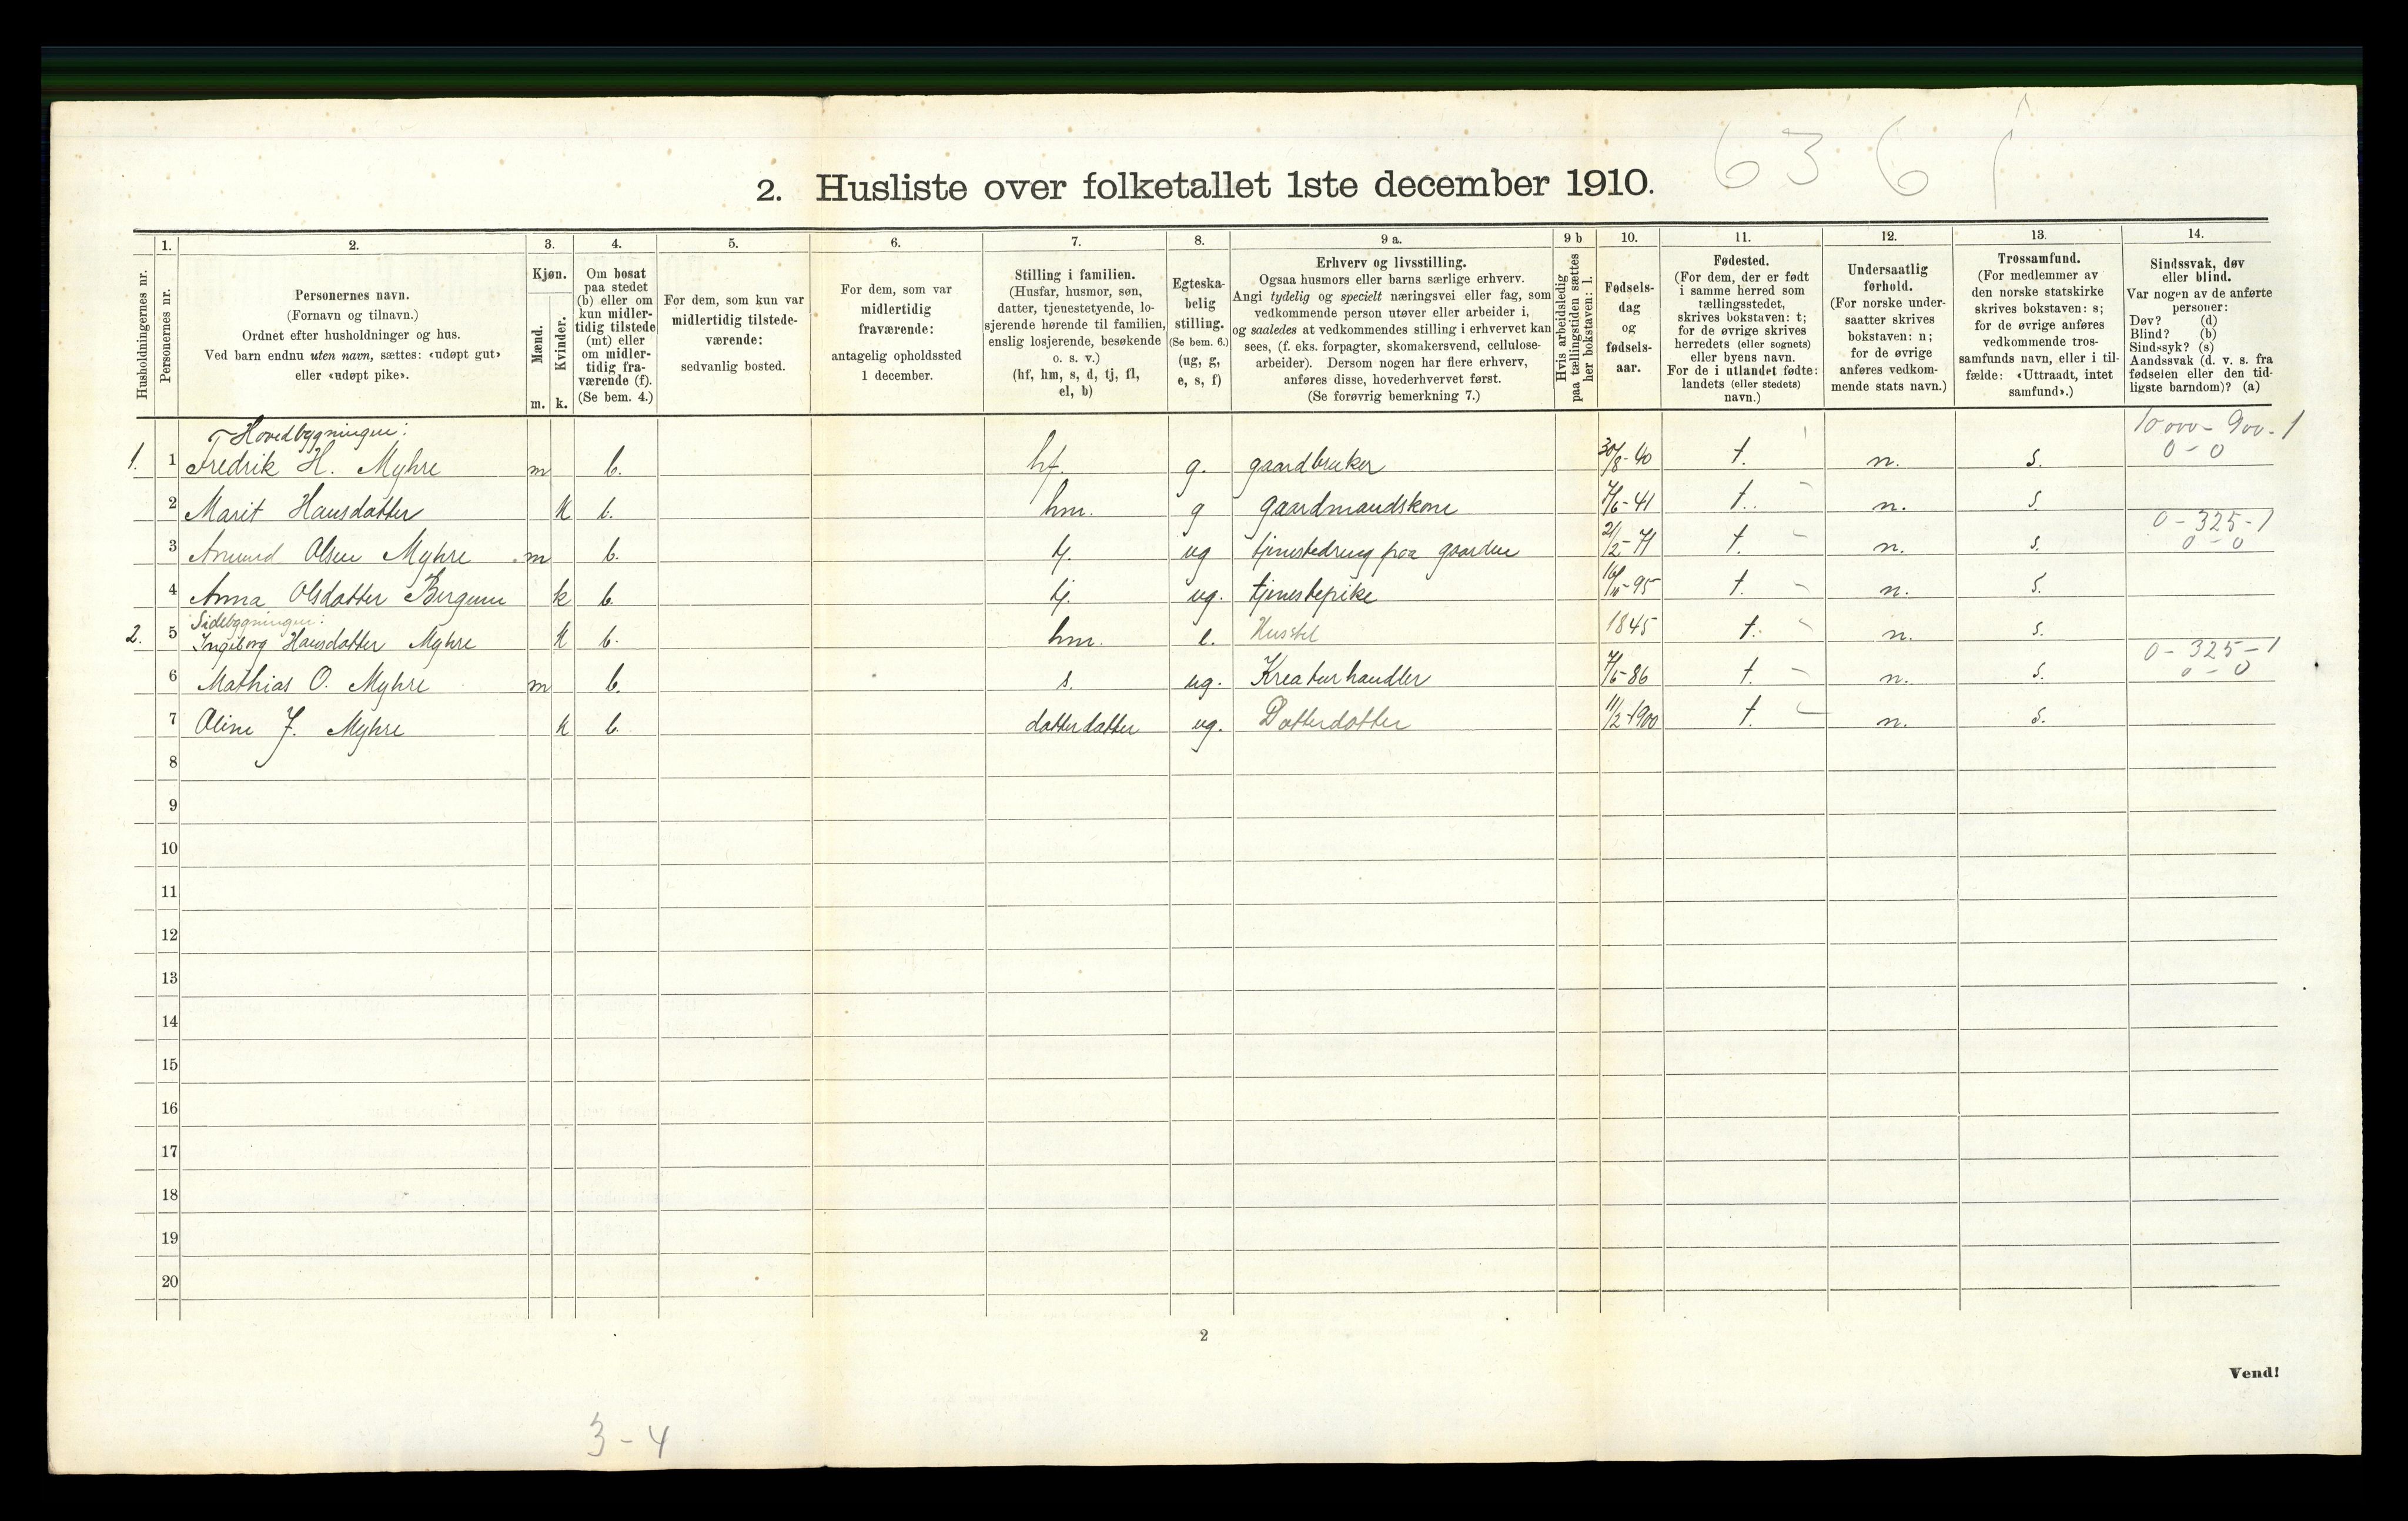 6 3 6
2. Husliste over folketallet 1ste december 1910.
Husholdningernes nr.
1.
Personernes nr.
2.
Personernes navn.
(Fornavn og tilnavn.)
Ordnet efter husholdninger og hus.
Ved barn endnu uten navn, sættes: «udøpt gut»
eller «udøpt pike».
3.
Kjøn.
Mænd.
Kvinder.
m. k.
4.
Om bosat
paa stedet
(b) eller om
kun midler-
tidig tilstede
(mt) eller
om midler-
tidig fra-
værende (f).
(Se bem. 4.)
5.
For dem, som kun var
midlertidig tilstede-
værende:
sedvanlig bosted.
6.
For dem, som var
midlertidig
fraværende:
antagelig opholdssted
1 december.
7.
Stilling i familien.
(Husfar, husmor, søn,
datter, tjenestetyende, lo-
sjerende hørende til familien,
enslig losjerende, besøkende
o. s. v.)
(hf, hm, s, d, tj, fl,
el, b)
8.
Egteska-
belig
stilling.
(Se bem. 6.)
(ug, g,
e, s, f)
9 a.
Erhverv og livsstilling.
Ogsaa husmors eller barns særlige erhverv.
Angi tydelig og specielt næringsvei eller fag, som
vedkommende person utøver eller arbeider i,
og saaledes at vedkommendes stilling i erhvervet kan
sees, (f. eks. forpagter, skomakersvend, cellulose-
arbeider). Dersom nogen har flere erhverv,
anføres disse, hovederhvervet først.
(Se forøvrig bemerkning 7.)
9 b
Hvis arbeidsledig
paa tællingstiden sættes
her bokstaven: l.
10.
Fødsels-
dag
og
fødsels-
aar.
11.
Fødested.
(For dem, der er født
i samme herred som
tællingsstedet,
skrives bokstaven: t;
for de øvrige skrives
herredets (eller sognets)
eller byens navn.
For de i utlandet fødte:
landets (eller stedets)
navn.)
12.
Undersaatlig
forhold.
(For norske under-
saatter skrives
bokstaven: n;
for de øvrige
anføres vedkom-
mende stats navn.)
13.
Trossamfund.
(For medlemmer av
den norske statskirke
skrives bokstaven: s;
for de øvrige anføres
vedkommende tros-
samfunds navn, eller i til-
fælde: «Uttraadt, intet
samfund».)
14.
Sindssvak, døv
eller blind.
Var nogen av de anførte
personer:
Døv? (d)
Blind? (b)
Sindssyk? (s)
Aandssvak (d. v. s. fra
fødselen eller den tid-
ligste barndom)? (a)
Hovedbygningen: 10000 - 900 - 1
1. 1 Fredrik H. Myhre m b. hf. g. gaardbruker 30/8-40 t. n. s. 0 - 0
2 Marit Hansdatter k b. hm. g gaardmandskone 7/6-41 t. n. s.
0 - 325 - 1
3 Amund Olsen Myhre m b. tj. ug tjenestedreng paa gaarden 2/2-71 t. n. s. 0 - 0
4 Anna Olsdatter Bergum k b. tj. ug. tjenestepike 16/10-95 t. n. s.
Sidebygningen:
2. 5 Ingeborg Hansdatter Myhre k b. hm. e. Husstel 1845 t. n. s.
0 - 325 - 1
6 Mathias O. Myhre m b. s. ug. Kreaturhandler 7/6-86 t. n. s. 0 - 0
7 Oline J. Myhre k b. datterdatter ug. Datterdatter 11/2-1900 t. n. s.
8
9
10
11
12
13
14
15
16
17
18
19
20
2
Vend!
3 - 4